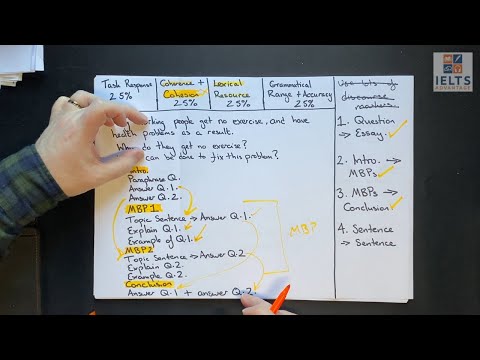 Task Response
25%
Coherence +
Cohesion
25%
Lexical
Resource
25%
Grammatical
Range + Accuracy
25%
working people get no exercise, and have
health problems as a result.
Why do they get no exercise?
can be done to fix this problem?
Intro.
Paraphrase Q.
Answer Q.1.
Answer Q.2.
MBP1
Topic Sentence → Answer Q.1.
Explain Q.1.
Example of Q.1.
MBP2
Topic Sentence → Answer Q.2
Explain Q.2.
Example Q.2.
Conclusion
Answer Q.1 + answer Q.2.
MBP
Use lots of
discourse
markers
1. Question
→ Essay.
2. Intro. →
MBPs
3. MBPs →
Conclusion
4. Sentence
→ Sentence
IELTS
ADVANTAGE